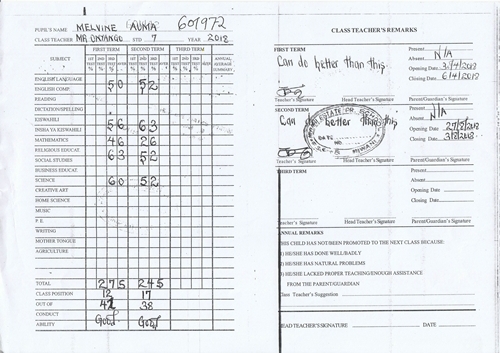 PUPIL'S NAME MELVINE AUMA 601972
CLASS TEACHER MR ONYANGO STD 7 YEAR 2018
FIRST TERM SECOND TERM THIRD TERM
SUBJECT 1ST TEST % 2ND TEST % 3RD TEST % AVERAGE 1ST TEST % 2ND TEST % 3RD TEST % AVERAGE 1ST TEST % 2ND TEST % 3RD TEST % AVERAGE ANNUAL AVERAGE SUMMARY
ENGLISH LANGUAGE 50 52
ENGLISH COMP.
READING
DICTATION/SPELLING
KISWAHILI 56 63
INSHA YA KISWAHILI
MATHEMATICS 46 26
RELIGIOUS EDUCAT. 63 52
SOCIAL STUDIES
BUSINESS EDUCAT.
SCIENCE 60 52
CREATIVE ART
HOME SCIENCE
MUSIC
P.E.
WRITING
MOTHER TONGUE
AGRICULTURE
TOTAL 275 245
CLASS POSITION 12 17
OUT OF 42 38
CONDUCT Good Good
ABILITY
CLASS TEACHER'S REMARKS
FIRST TERM
Can do better than this.
Present N/A
Absent
Opening Date 3/1/2018
Closing Date 6/4/2018
Teacher's Signature Head Teacher's Signature Parent/Guardian's Signature
SECOND TERM
Can do better than this
Present
Absent N/A
Opening Date
Closing Date 3/8/2018
Teacher's Signature Head Teacher's Signature Parent/Guardian's Signature
THIRD TERM
Present
Absent
Opening Date
Closing Date
Teacher's Signature Head Teacher's Signature Parent/Guardian's Signature
ANNUAL REMARKS
THIS CHILD HAS/NOT BEEN PROMOTED TO THE NEXT CLASS BECAUSE:
HE/SHE HAS DONE WELL/BADLY
HE/SHE HAS NATURAL PROBLEMS
HE/SHE LACKED PROPER TEACHING/ENOUGH ASSISTANCE
FROM THE PARENT/GUARDIAN
Class Teacher's Suggestion
HEAD TEACHER'S SIGNATURE DATE